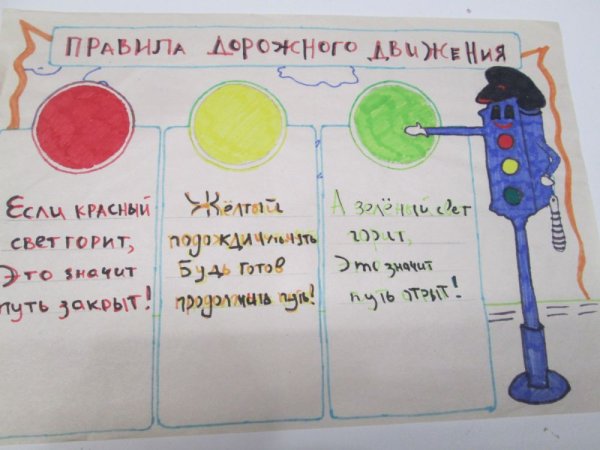 ПРАВИЛА ДОРОЖНОГО ДВИЖЕНИЯ
Если красный
свет горит,
Это значит
путь закрыт!
Жёлтый
подожди чуть-чуть
Будь готов
продолжить путь!
А зелёный свет
горит,
Это значит
путь отрыт!